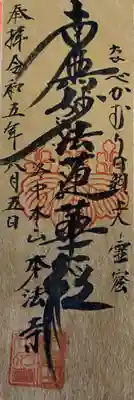 なべかむり日親大
南無妙法蓮華経
本山 本法寺
奉拝 令和五年六月五日